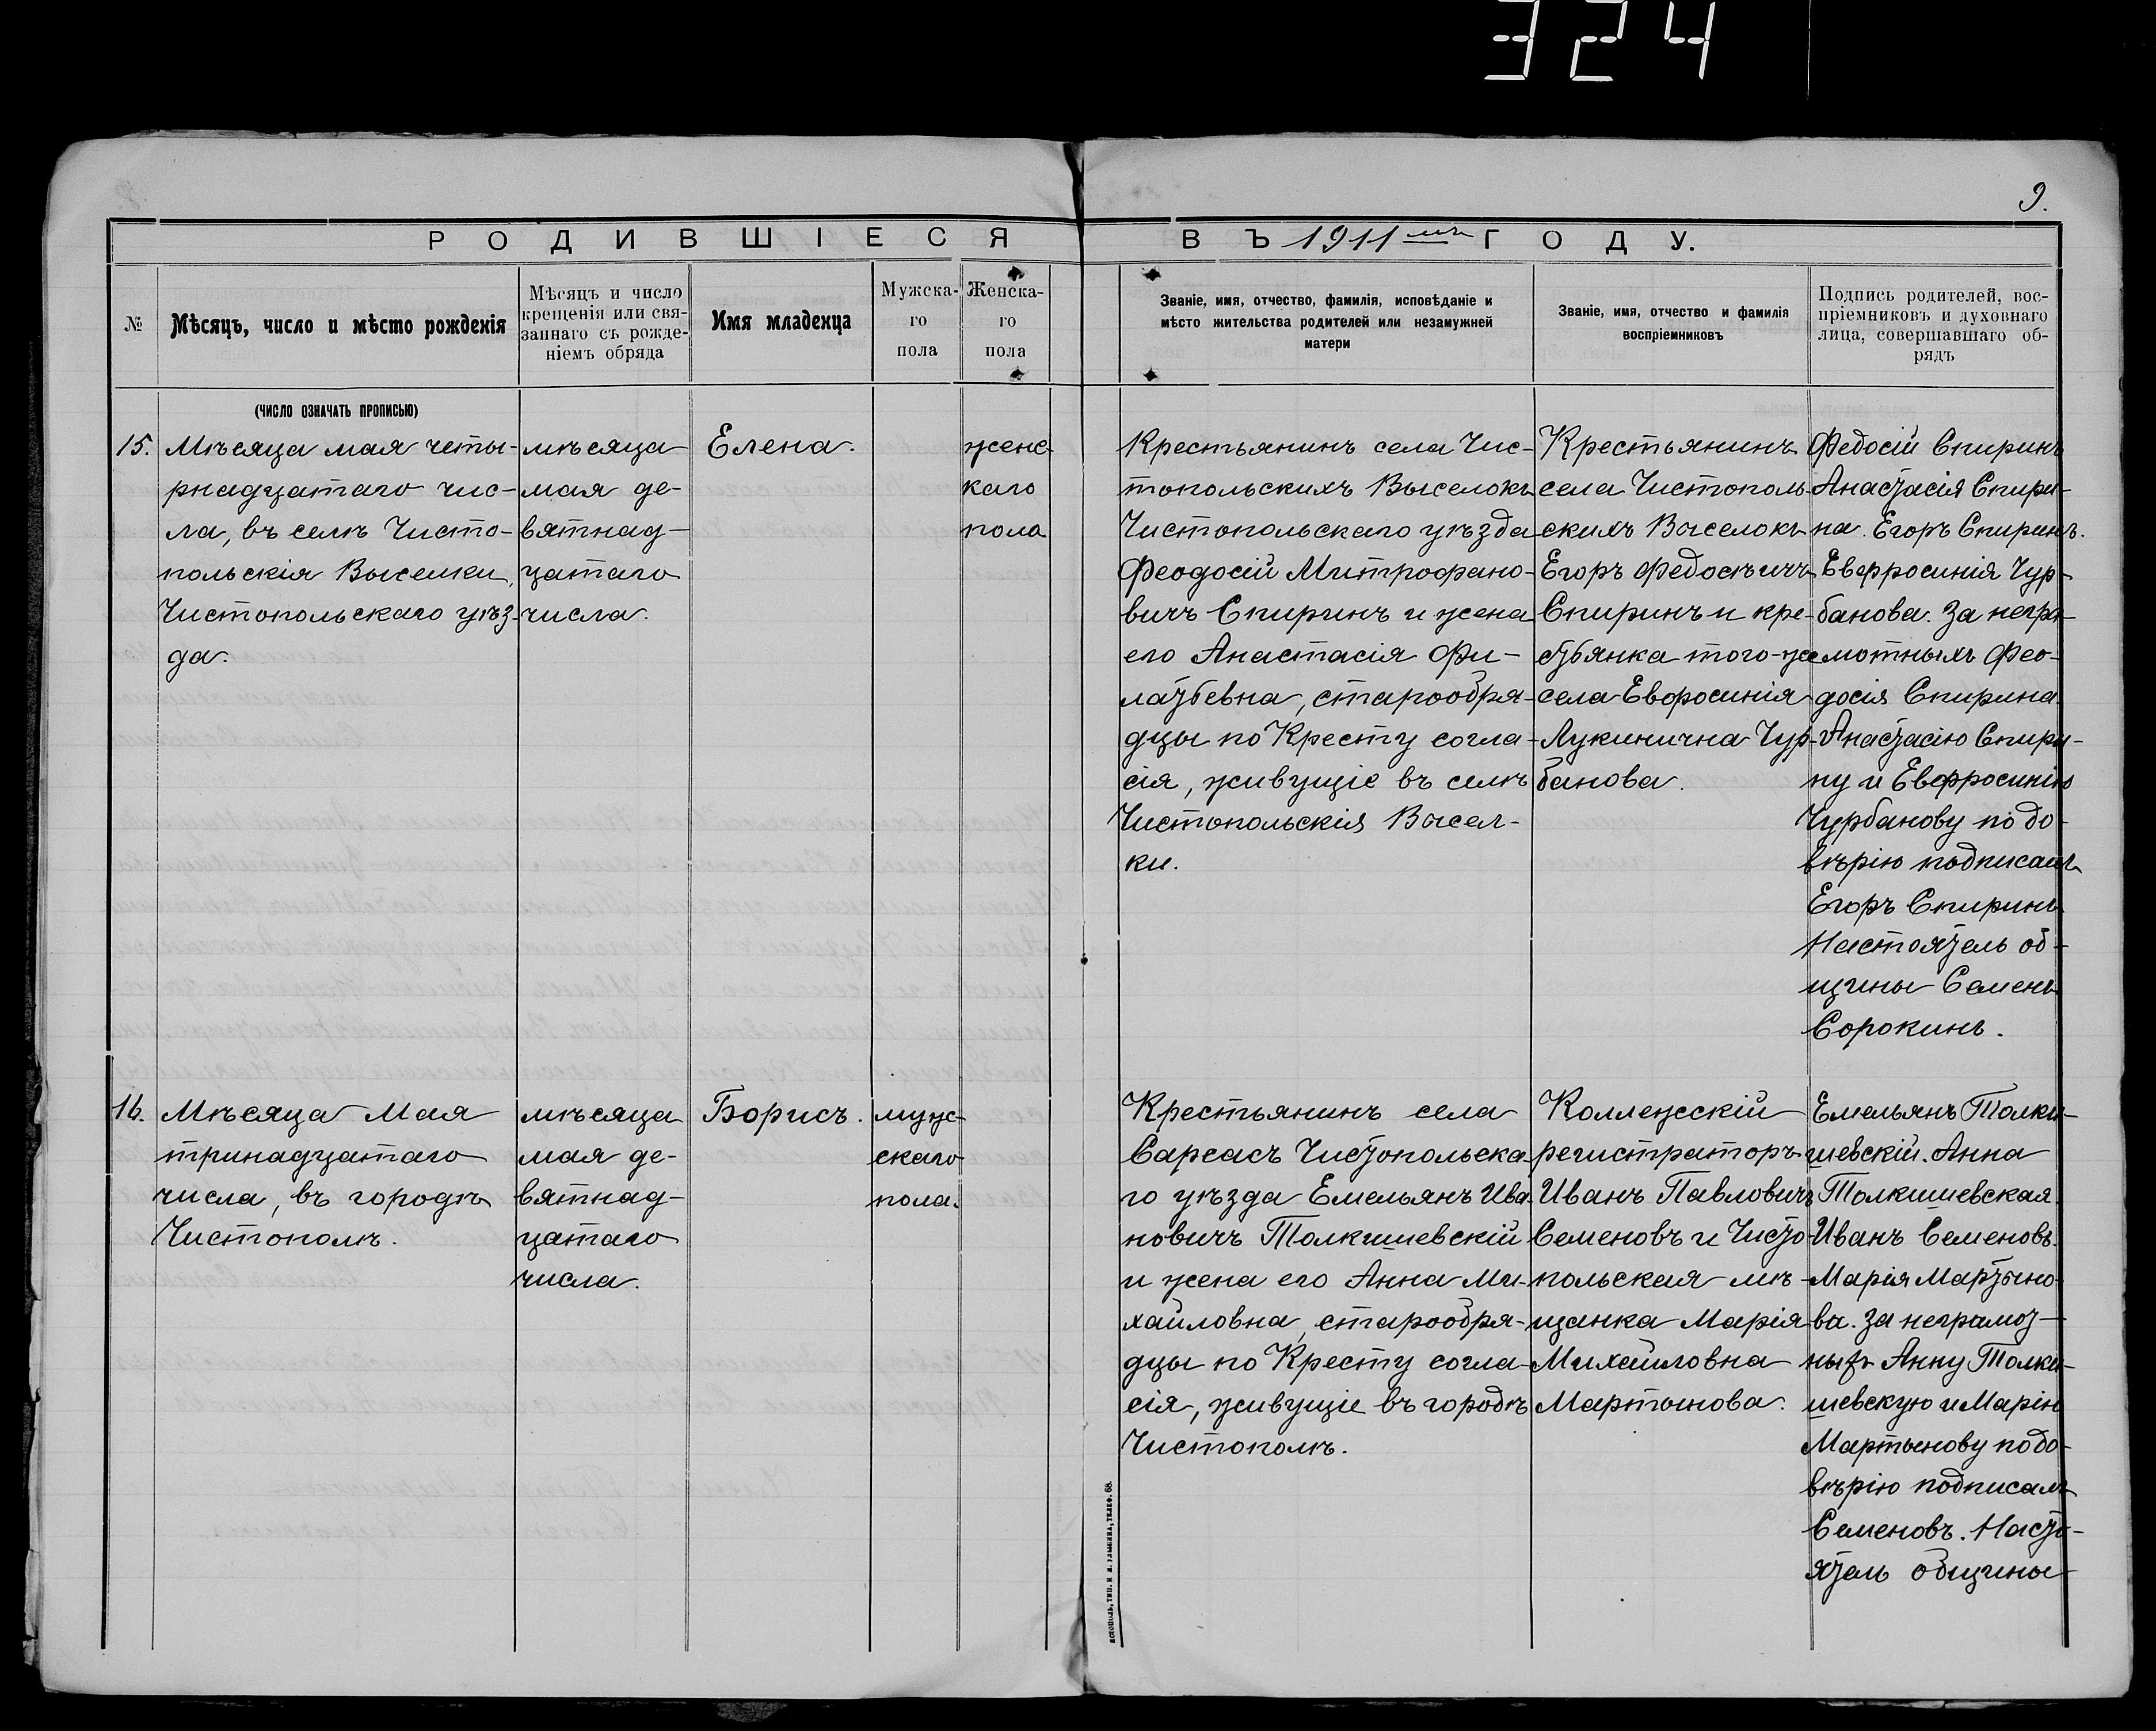 324
9.
РОДИВШІЕСЯ ВЪ 1911мъ ГОДУ.
№
Мѣсяцъ, число и мѣсто рожденія
Мѣсяцъ и число
крещенія или свя-
заннаго съ рожде-
ніемъ обряда
Имя младенца
Мужска-
го
пола
Женска-
го
пола
Званіе, имя, отчество, фамилія, исповѣданіе и
мѣсто жительства родителей или незамужней
матери
Званіе, имя, отчество и фамилія
воспріемниковъ
Подпись родителей, вос-
пріемниковъ и духовнаго
лица, совершавшаго об-
рядъ
(число означать прописью)
15.
Мѣсяца мая четы-
рнадцатаго чис-
ла, въ селѣ Чисто-
польскія Выселки,
Чистопольскаго уѣз-
да.
мѣсяца
мая де-
вятнад-
цатаго
числа.
Елена.
женс-
каго
пола
Крестьянинъ села Чис-
топольскихъ Выселокъ
Чистопольскаго уѣзда
Феодосій Митрофано-
вичъ Спиринъ и жена
его Анастасія Фи-
латьевна, старообря-
дцы по Кресту согла-
сія, живущіе въ селѣ
Чистопольскія Высел-
ки.
Крестьянинъ
села Чистополь-
скихъ Выселокъ
Егоръ Федосѣичъ
Спиринъ и кре-
стьянка того-же
села Евфросинія
Лукинична Чур-
банова.
Федосій Спиринъ
Анастасія Спири-
на. Егоръ Спиринъ.
Евфросинія Чур-
банова. За негра-
мотныхъ Фео-
досія Спирина
Анастасію Спири-
ну и Евфросинію
Чурбанову по до-
вѣрію подписалъ
Егоръ Спиринъ
Настоятель об-
щины Семенъ
Сорокинъ.
16.
Мѣсяца Мая
тринадцатаго
числа, въ городѣ
Чистополѣ.
мѣсяца
мая де-
вятнад-
цатаго
числа.
Борисъ.
муж-
скаго
пола.
Крестьянинъ села
Сарсасъ Чистопольска-
го уѣзда Емельянъ Ива-
новичъ Толкишевскій
и жена его Анна Ми-
хайловна, старообря-
дцы по Кресту согла-
сія, живущіе въ городѣ
Чистополѣ.
Коллежскій
регистраторъ
Иванъ Павловичъ
Семеновъ и Чисто-
польская мѣ-
щанка Марія
Михайловна
Мартынова.
Емельянъ Толки-
шевскій. Анна
Толкишевская.
Иванъ Семеновъ.
Марія Мартыно-
ва. За неграмот-
ныхъ Анну Толки-
шевскую и Марію
Мартынову по до-
вѣрію подписалъ
Семеновъ. Насто-
ятель общины